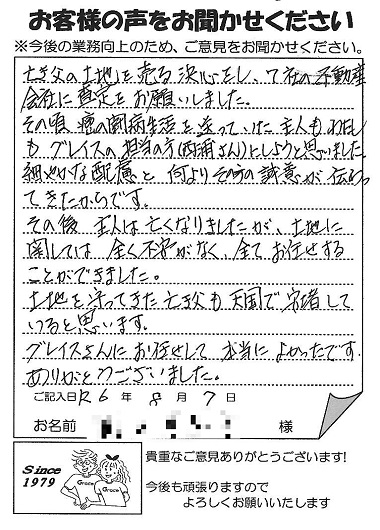 お客様の声をお聞かせください
※今後の業務向上のため、ご意見をお聞かせください。
亡き父の土地を売る決心をし、7社の不動産
会社に査定をお願いしました。
その頃 癌の闘病生活を送っていた主人もわたし
も グレイスの担当の方(西浦さん)にしようと思いました
細やかな配慮と何よりその方の誠意が伝わっ
てきたからです。
その後 主人は亡くなりましたが、土地に
関しては 全く不安がなく、全てお任せする
ことができました。
土地を守ってきた亡き父も天国で安堵して
いると思います。
グレイスさんにお任せして 本当によかったです
ありがとうございました。
ご記入日 R6 年 8 月 7 日
お名前 様
Since
1979
Grace
Grace
貴重なご意見ありがとうございます!
今後も頑張りますので
よろしくお願いいたします